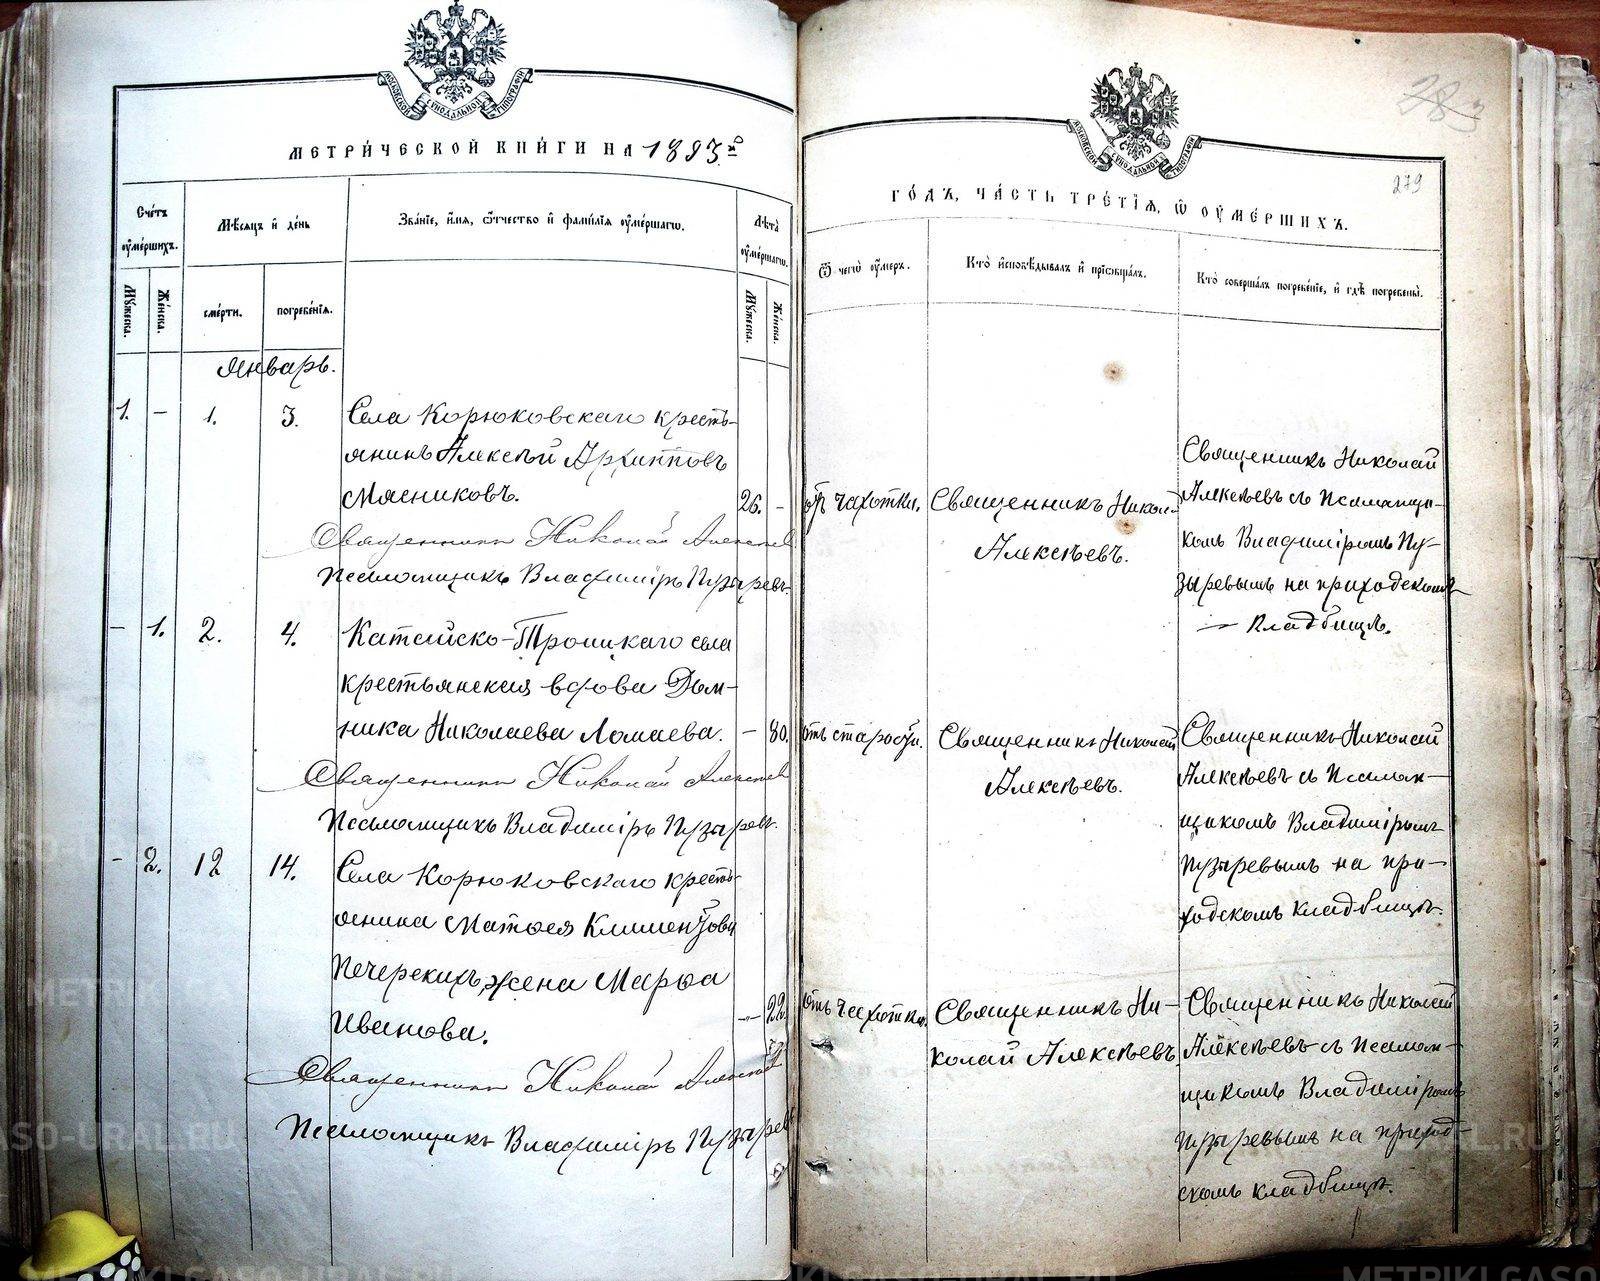 МОСКОВСКОЙ СѴНОДАЛЬНОЙ ТИПОГРАФІИ
МЕТРИ́ЧЕСКОЙ КНИ́ГИ НА 1893.й
Сче́тъ ᲂу҆ме́ршихъ.
Мѣ́сяцъ и҆ де́нь
Зва́нїе, и҆́мя, ѻ҆́тчество и҆ фами́лїя ᲂу҆ме́ршагѡ.
Лѣ́та ᲂу҆ме́ршагѡ.
Мꙋ́жеска.
Же́нска.
сме́рти.
погребе́нїя.
Мꙋ́жеска.
Же́нска.
Январь.
1. — 1. 3. Села Корюковскаго кресть-
янинъ Алексѣй Архипповъ
Мясниковъ. 26. -
Священникъ Николай Алексѣев
Псаломщикъ Владиміръ Пузыревъ.
— 1. 2. 4. Катайско-Троицкаго села
крестьянская вдова Дом-
ника Николаева Ломаева. — 80.
Священникъ Николай Алексѣев
Псаломщикъ Владиміръ Пузыревъ.
- 2. 12 14. Села Корюковскаго кресть-
янина Матѳея Климентова
Печерскихъ, жена Марѳа
Иванова. — 22.
Священникъ Николай Алексѣев
Псаломщикъ Владиміръ Пузырев
283
279
МОСКОВСКОЙ СѴНОДАЛЬНОЙ ТИПОГРАФІИ
ГО́ДЪ, ЧА́СТЬ ТРЕ́ТЇѦ, Ѡ҆ ОУ҆МЕ́РШИХЪ.
Ѿ чегѡ̀ ᲂу҆́меръ.
Кто̀ и҆сповѣ́дывалъ и҆ прїѡбща́лъ.
Кто̀ соверша́лъ погребе́нїе, и҆ гдѣ̀ погребены̀.
отъ чахотки.
Священникъ Никол-
Алексѣевъ.
Священникъ Николай
Алексѣевъ съ псаломщи-
комъ Владиміромъ Пу-
зыревымъ на приходскомъ
кладбищѣ.
отъ старости.
Священникъ Николай
Алексѣевъ.
Священникъ Николай
Алексѣевъ съ псалом-
щикомъ Владиміромъ
Пузыревымъ на при-
ходскомъ кладбищѣ.
отъ чахотки.
Священникъ Ни-
колай Алексѣевъ
Священникъ Николай
Алексѣевъ съ псалом-
щикомъ Владиміромъ
Пузыревымъ на приход-
скомъ кладбищѣ.
METRIKI.GASO-URAL.RU